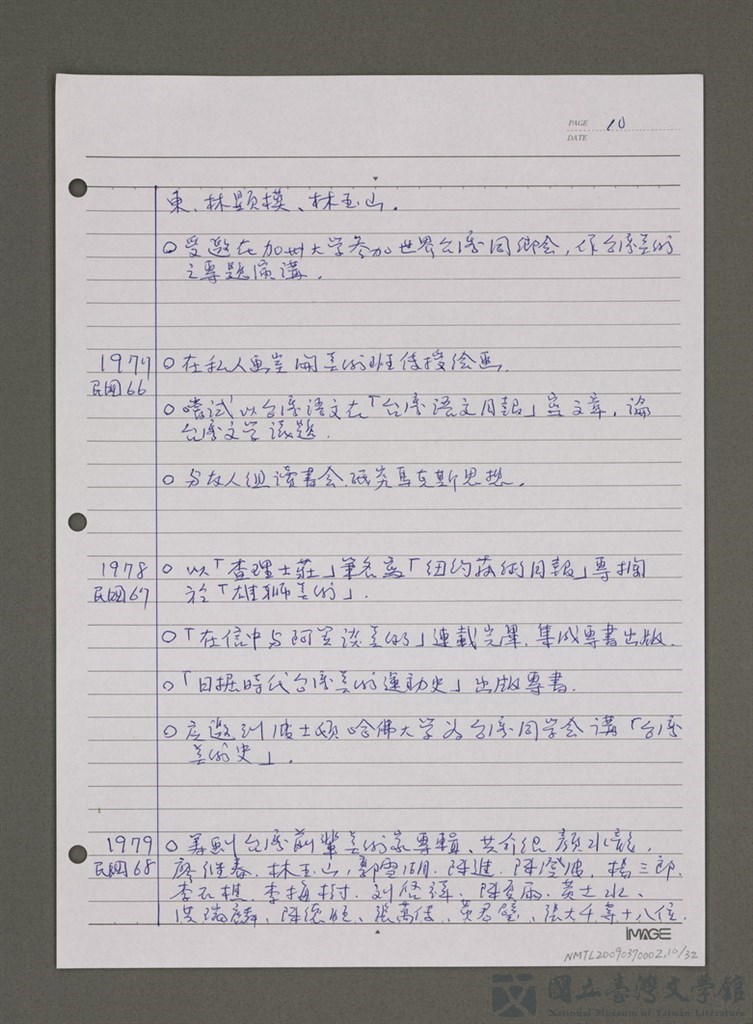 PAGE 10
DATE
東、林顯模、林玉山.
○ 受邀在加州大学參加世界台湾同鄉会, 作台湾美術
之專題演講.
1977 ○ 在私人画室開美術班传授绘画.
民國66
○ 嚐試以台湾語文在「台湾語文月報」寫文章, 論
台湾文学議題.
○ 与友人组讀書会.研究馬克斯思想.
1978 ○ 以「查理士莊」筆名寫「纽约藝術月報」專欄
民國67 於「雄獅美術」.
○「在信中与阿笠談美術」連載完畢.集成專書出版.
○「日据時代台湾美術運動史」出版專書.
○ 应邀到波士頓哈佛大学为台湾同学会講「台湾
美術史」.
1979 ○ 筹劃台湾前輩美術家專輯.共介绍顏水龍,
民國68 廖继春.林玉山,郭雪湖.陳進.陳澄波.楊三郎.
李石樵.李梅树.刘啓祥、陳夏雨.黄土水、
洪瑞麟、陳德旺、張萬传、黄君璧、張大千等十八位.
IMAGE
NMTL20090370002.10/32
國立臺灣文學館
National Museum of Taiwan Literature